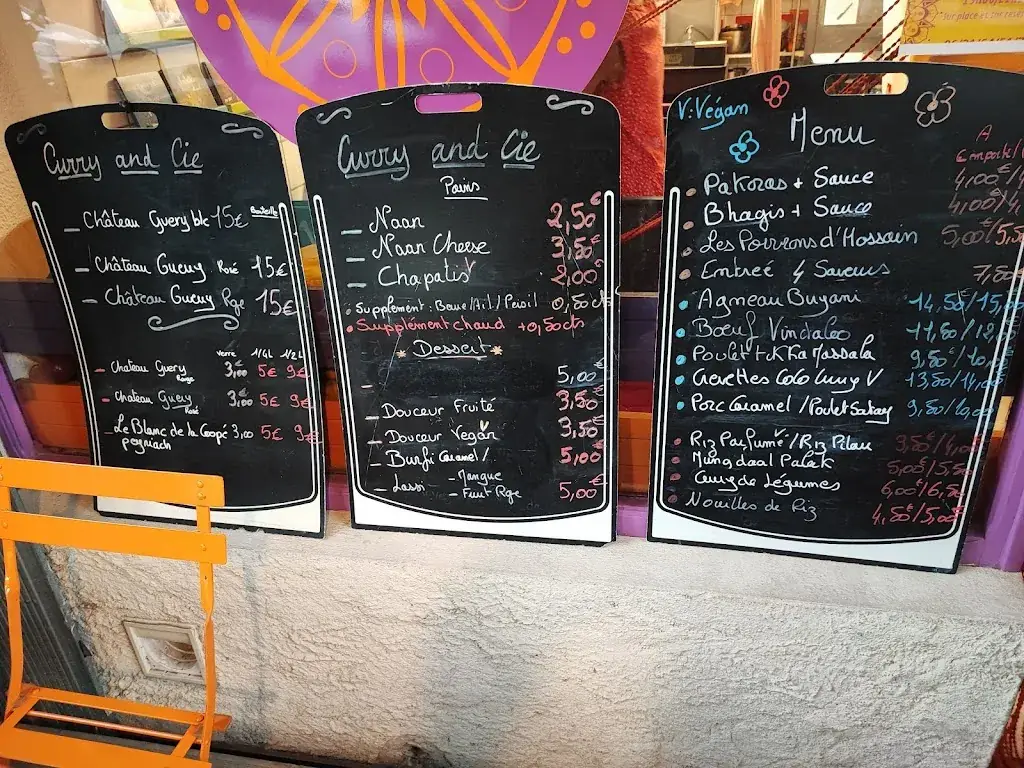 Curry and Cie
Bouteille
Château Guery blc 15€
Château Guery Rosé 15€
Château Guery Rge 15€
Verre 1/4L 1/2L
Chateau Guery Rouge 3,00 5€ 9€
Chateau Guery Rosé 3,00 5€ 9€
Le Blanc de la Coopé 3,00 5€ 9€
peyriach
Curry and Cie
Pains
Naan 2,50€
Naan Cheese 3,50€
Chapatis V 2,00€
Supplement: /Ail/ 0,50cts
Supplement chaud +0,50cts
Dessert
5,00
Douceur Fruité 3,50
Douceur Vegan 3,50
Burfi Caramel/ 5,00
Lassi - Mangue
- Fruit Rge 5,00€
V:Végan
Menu
A
Emporté/
Pakoras + Sauce 4,00€/4
Bhagis + Sauce 4,00/4,
Les Poivrons d'Hossain 5,00/5,5
Entreé 4 Saveurs 7,80
Agneau Buyani 14,50/15,00
Boeuf Vindaloo 11,80/12,
Poulet tikka Massala 9,50/10,
Crevettes Coco Curry V 13,50/14,00
Porc Caramel/Poulet Satay 9,50/10,00
Riz Parfumé/Riz Pilau 3,50€/4,00
Mung daal Palak 5,00/5,50
Curry de Légumes 6,00/6,50
Nouilles de Riz 4,50/5,00